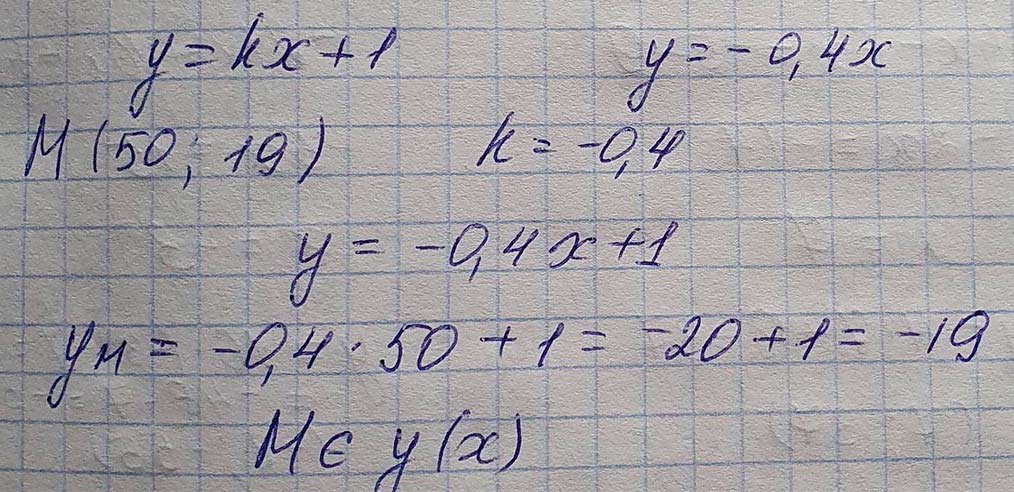 y = kx + 1 y = -0,4x
M (50; 19) k = -0,4
y = -0,4x + 1
yм = -0,4 · 50 + 1 = -20 + 1 = -19
M ∈ y(x)